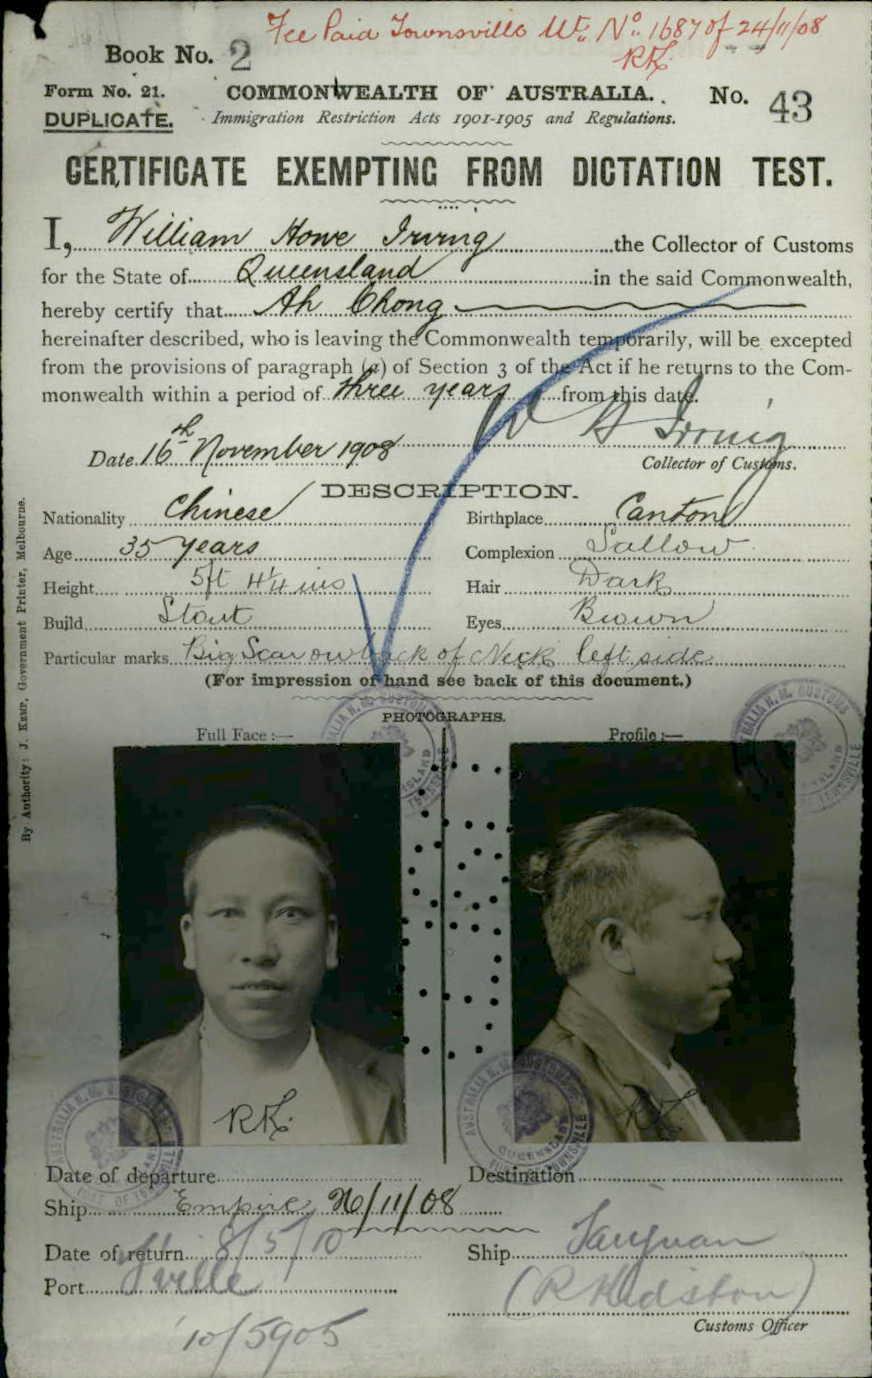 Fee Paid Townsville Wt. No. 1687 of 24/11/08
RK.
Book No. 2
Form No. 21. COMMONWEALTH OF AUSTRALIA. No. 43
DUPLICATE. Immigration Restriction Acts 1901-1905 and Regulations.
CERTIFICATE EXEMPTING FROM DICTATION TEST.
I, William Howe Irving the Collector of Customs
for the State of Queensland in the said Commonwealth,
hereby certify that Ah Chong
hereinafter described, who is leaving the Commonwealth temporarily, will be excepted
from the provisions of paragraph (a) of Section 3 of the Act if he returns to the Com-
monwealth within a period of three years from this date.
W H Irving
Date 16th November 1908 Collector of Customs.
DESCRIPTION.
Nationality Chinese Birthplace Canton
Age 35 years Complexion Sallow
Height 5ft 4¼ ins Hair Dark
Build Stout Eyes Brown
Particular marks Big Scar on back of Neck left side
(For impression of hand see back of this document.)
PHOTOGRAPHS.
Full Face :— Profile :—
By Authority: J. Kemp, Government Printer, Melbourne.
RK. RK.
Date of departure Destination
Ship Empire 26/11/08
Date of return 8/5/10 Ship Taiyuan
Port T'ville (R Kidston)
Customs Officer
10/5905